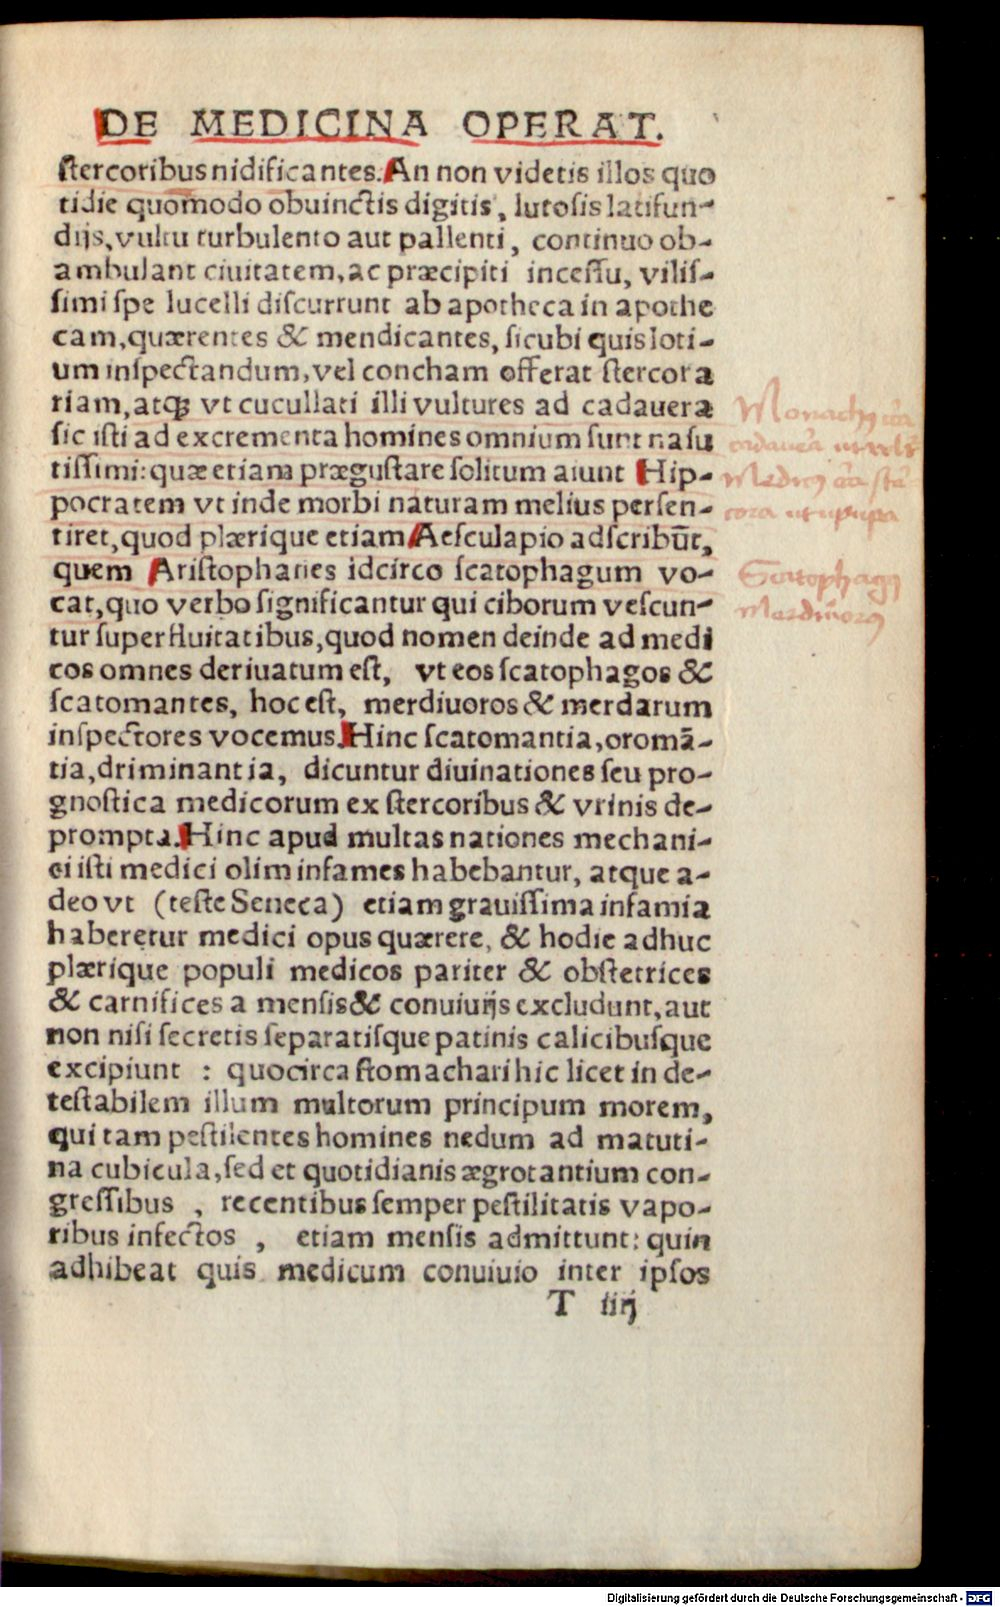 DE MEDICINA OPERAT.
ſtercoribus nidificantes. An non videtis illos quo
tidie quomodo obuinctis digitis, lutoſis latifun-
dijs, vultu turbulento aut pallenti, continuo ob-
ambulant ciuitatem, ac præcipiti inceſſu, viliſ-
ſimi ſpe lucelli diſcurrunt ab apotheca in apothe
cam, quærentes & mendicantes, ſicubi quis loti-
um inſpectandum, vel concham offerat ſtercora
riam, atqꝫ vt cucullati illi vultures ad cadauera
ſic iſti ad excrementa homines omnium ſunt naſu
tiſſimi: quæ etiam præguſtare ſolitum aiunt Hip-
pocratem vt inde morbi naturam melius perſen-
tiret, quod plærique etiam Aeſculapio adſcribūt,
quem Ariſtophanes idcirco ſcatophagum vo-
cat, quo verbo ſignificantur qui ciborum veſcun-
tur ſuperfluitatibus, quod nomen deinde ad medi
cos omnes deriuatum eſt, vt eos ſcatophagos &
ſcatomantes, hoc eſt, merdiuoros & merdarum
inſpectores vocemus. Hinc ſcatomantia, oromā-
tia, driminantia, dicuntur diuinationes ſeu pro-
gnoſtica medicorum ex ſtercoribus & vrinis de-
prompta. Hinc apud multas nationes mechani-
ci iſti medici olim infames habebantur, atque a-
deo vt (teſte Seneca) etiam grauiſſima infamia
haberetur medici opus quærere, & hodie adhuc
plærique populi medicos pariter & obſtetrices
& carnifices a menſis & conuiuijs excludunt, aut
non niſi ſecretis ſeparatiſque patinis calicibuſque
excipiunt : quocirca ſtomachari hic licet in de-
teſtabilem illum multorum principum morem,
qui tam peſtilentes homines nedum ad matuti-
na cubicula, ſed et quotidianis ægrotantium con-
greſſibus , recentibus ſemper peſtilitatis vapo-
ribus infectos , etiam menſis admittunt: quin
adhibeat quis medicum conuiuio inter ipſos
T iiij
Monachꝰ
cadauera
Medicꝰ
cora ut upupa
Scatophagꝰ
Merdiuorꝰ
Digitalisierung gefördert durch die Deutsche Forschungsgemeinschaft - DFG